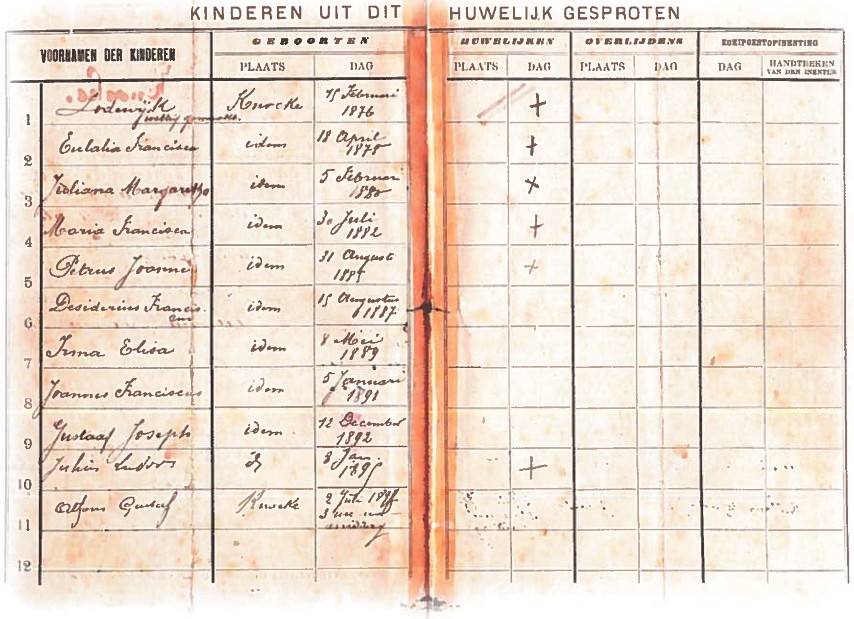 KINDEREN UIT DIT HUWELIJK GESPROTEN
VOORNAMEN DER KINDEREN GEBOORTEN HUWELIJKEN OVERLIJDENS KOEIPOKSTOFINENTING
PLAATS DAG PLAATS DAG PLAATS DAG DAG HANDTREKEN VAN DEN INENTER
1 Lodewijk Knocke 15 Februari 1876 +
2 Eulalia Francisca idem 18 April 1878 +
3 Juliana idem 5 Februari 1880 +
4 Maria Francisca idem 30 Juli 1882 +
5 Petrus Joannes idem 31 August 1885 +
6 Desiderius idem 15 Augustus 1887
7 Irma Elisa idem 8 Mei 1889
8 Joannes Franciscus idem 5 Januari 1891
9 Gustaaf Joseph idem 12 December 1892
10 Julius Jan. +
11 Alfons Gustaf Knocke 2 Juli
3 ure
middag
12